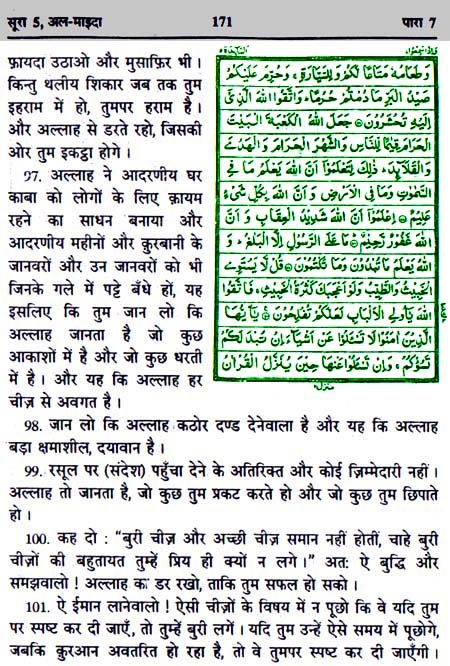 सूरा 5, अल-माइदा 171 पारा 7
फ़ायदा उठाओ और मुसाफ़िर भी।
किन्तु थलीय शिकार जब तक तुम
इहराम में हो, तुमपर हराम है।
और अल्लाह से डरते रहो, जिसकी
ओर तुम इकट्ठा होगे।
97. अल्लाह ने आदरणीय घर
काबा को लोगों के लिए क़ायम
रहने का साधन बनाया और
आदरणीय महीनों और क़ुरबानी के
जानवरों और उन जानवरों को भी
जिनके गले में पट्टे बँधे हों, यह
इसलिए कि तुम जान लो कि
अल्लाह जानता है जो कुछ
आकाशों में है और जो कुछ धरती
में है। और यह कि अल्लाह हर
चीज़ से अवगत है।
وَطَعَامُهٗ مَتَاعًا لَّكُمْ وَلِلسَّيَّارَةِ ۚ وَحُرِّمَ عَلَيْكُمْ
صَيْدُ الْبَرِّ مَا دُمْتُمْ حُرُمًا ۗ وَاتَّقُوا اللّٰهَ الَّذِيْٓ
اِلَيْهِ تُحْشَرُوْنَ ۝ جَعَلَ اللّٰهُ الْكَعْبَةَ الْبَيْتَ
الْحَرَامَ قِيٰمًا لِّلنَّاسِ وَالشَّهْرَ الْحَرَامَ وَالْهَدْيَ
وَالْقَلَآئِدَ ۚ ذٰلِكَ لِتَعْلَمُوْٓا اَنَّ اللّٰهَ يَعْلَمُ مَا فِي
السَّمٰوٰتِ وَمَا فِي الْاَرْضِ وَاَنَّ اللّٰهَ بِكُلِّ شَيْءٍ
عَلِيْمٌ ۝ اِعْلَمُوْٓا اَنَّ اللّٰهَ شَدِيْدُ الْعِقَابِ وَاَنَّ
اللّٰهَ غَفُوْرٌ رَّحِيْمٌ ۝ مَا عَلَى الرَّسُوْلِ اِلَّا الْبَلٰغُ ۗ وَ
اللّٰهُ يَعْلَمُ مَا تُبْدُوْنَ وَمَا تَكْتُمُوْنَ ۝ قُلْ لَّا يَسْتَوِي
الْخَبِيْثُ وَالطَّيِّبُ وَلَوْ اَعْجَبَكَ كَثْرَةُ الْخَبِيْثِ ۚ فَاتَّقُوا
اللّٰهَ يٰٓاُولِي الْاَلْبَابِ لَعَلَّكُمْ تُفْلِحُوْنَ ۝ يٰٓاَيُّهَا
الَّذِيْنَ اٰمَنُوْا لَا تَسْـَٔلُوْا عَنْ اَشْيَآءَ اِنْ تُبْدَ لَكُمْ
تَسُؤْكُمْ ۚ وَاِنْ تَسْـَٔلُوْا عَنْهَا حِيْنَ يُنَزَّلُ الْقُرْاٰنُ
98. जान लो कि अल्लाह कठोर दण्ड देनेवाला है और यह कि अल्लाह
बड़ा क्षमाशील, दयावान है।
99. रसूल पर (संदेश) पहुँचा देने के अतिरिक्त और कोई ज़िम्मेदारी नहीं।
अल्लाह तो जानता है, जो कुछ तुम प्रकट करते हो और जो कुछ तुम छिपाते
हो।
100. कह दो : "बुरी चीज़ और अच्छी चीज़ समान नहीं होतीं, चाहे बुरी
चीज़ों की बहुतायत तुम्हें प्रिय ही क्यों न लगे।" अतः ऐ बुद्धि और
समझवालो ! अल्लाह का डर रखो, ताकि तुम सफल हो सको।
101. ऐ ईमान लानेवालो ! ऐसी चीज़ों के विषय में न पूछो कि वे यदि तुम
पर स्पष्ट कर दी जाएँ, तो तुम्हें बुरी लगें। यदि तुम उन्हें ऐसे समय में पूछोगे,
जबकि क़ुरआन अवतरित हो रहा है, तो वे तुमपर स्पष्ट कर दी जाएँगी।